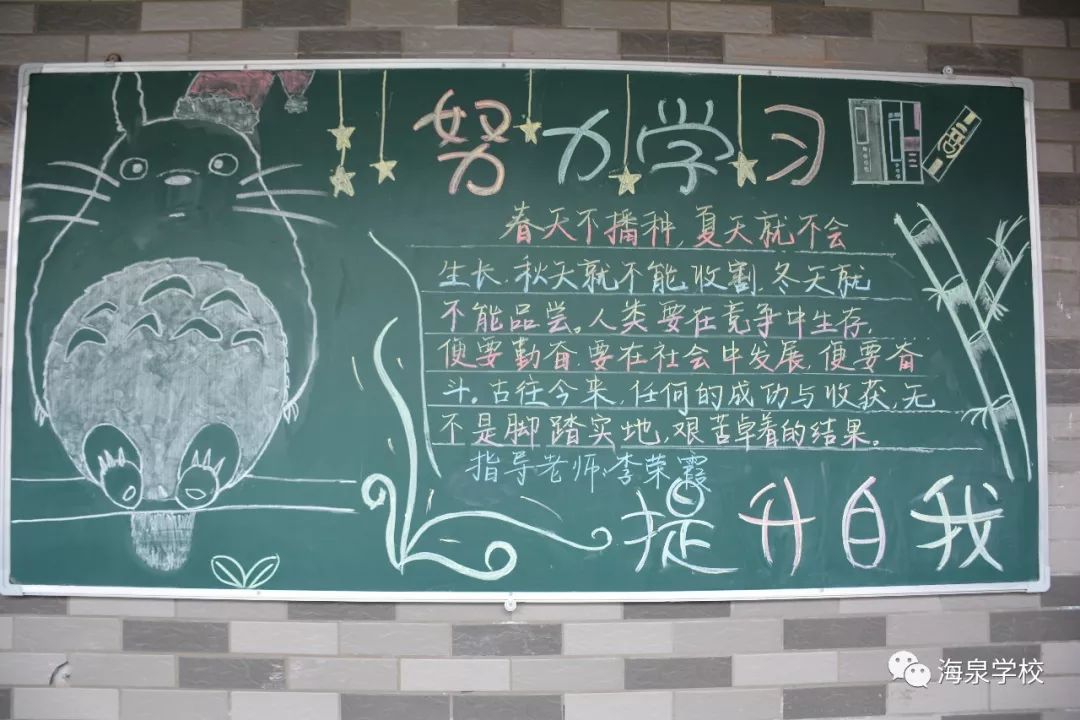 努力学习
春天不播种,夏天就不会
生长,秋天就不能收割,冬天就
不能品尝。人类要在竞争中生存,
便要勤奋,要在社会中发展,便要奋
斗。古往今来,任何的成功与收获,无
不是脚踏实地,艰苦卓着的结果。
指导老师:李荣霞
提升自我
海泉学校